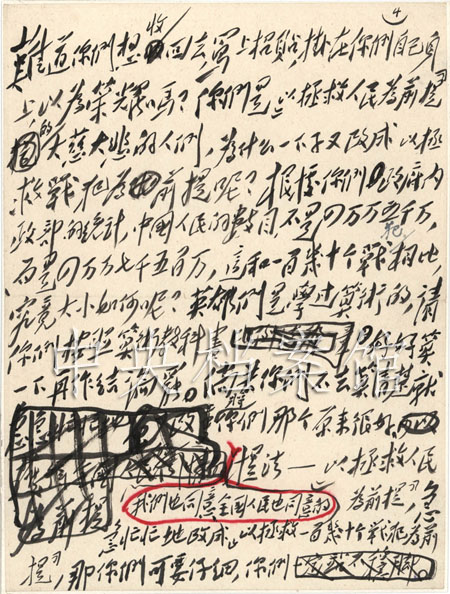 4
收
難道你們想回去,寫上招貼,掛在你們自己身
上以為榮耀嗎?你們是“以拯救人民為前提”
的大慈大悲的人們,為什么一下子又改成以拯
救戰犯為前提呢?根據你們政府內
政部的統計,中國人民的數目,不是四万万五千万,
而是四万万七千五百万,這和一百幾十个戰犯相比,
究竟大小如何呢?英雄們是學过算術的,請
你們按照算術教科書好好算
一下再作結論罷。倘若你們不去算清楚就
將你們那个原來很好、
提法——“以拯救人民
我們也同意、全國人民也同意的
為前提”,急
急忙忙地改成“以拯救一百幾十个戰犯為前
提”,那你們可要仔細,你們
中央档案馆